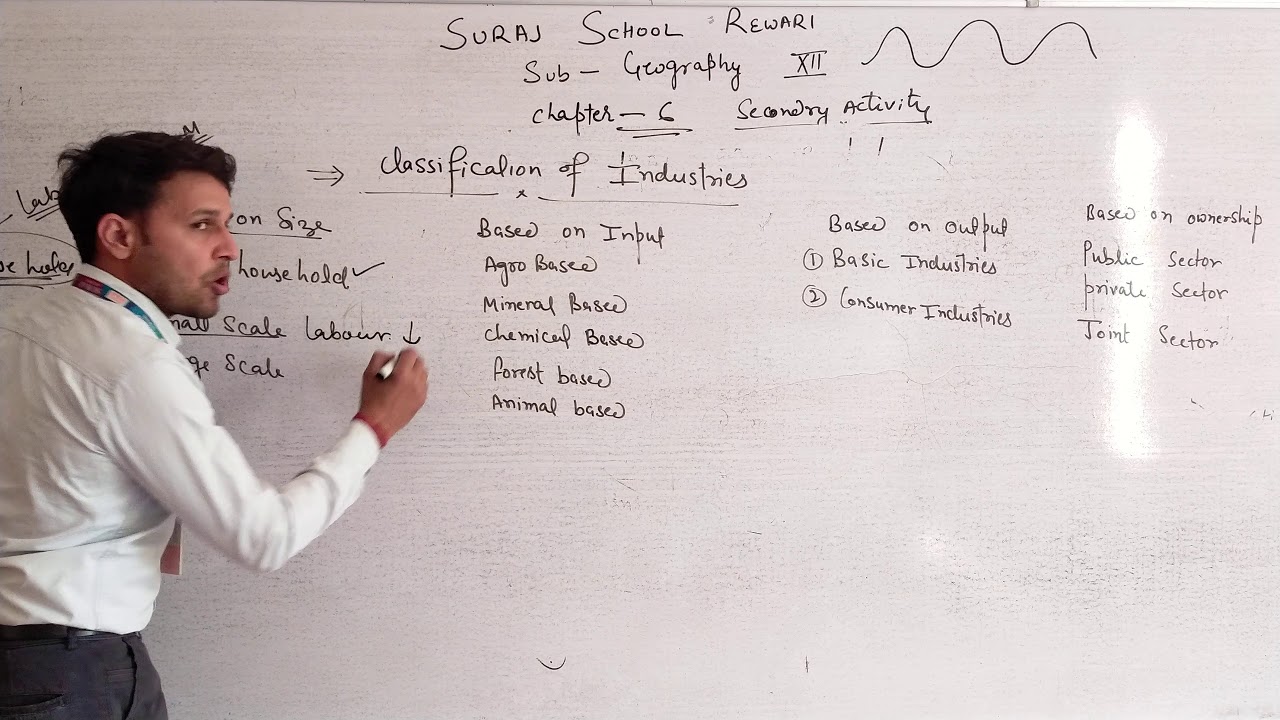 SURAJ SCHOOL REWARI
Sub - Geography XII
Chapter - 6 Secondry Activity
⇒ Classification of Industries
on Size
household ✓
Small Scale labour ↓
Scale
Based on Input
Agro Based
Mineral Based
Chemical Based
forest based
Animal based
Based on output
① Basic Industries
② Consumer Industries
Based on ownership
Public Sector
private Sector
Joint Sector